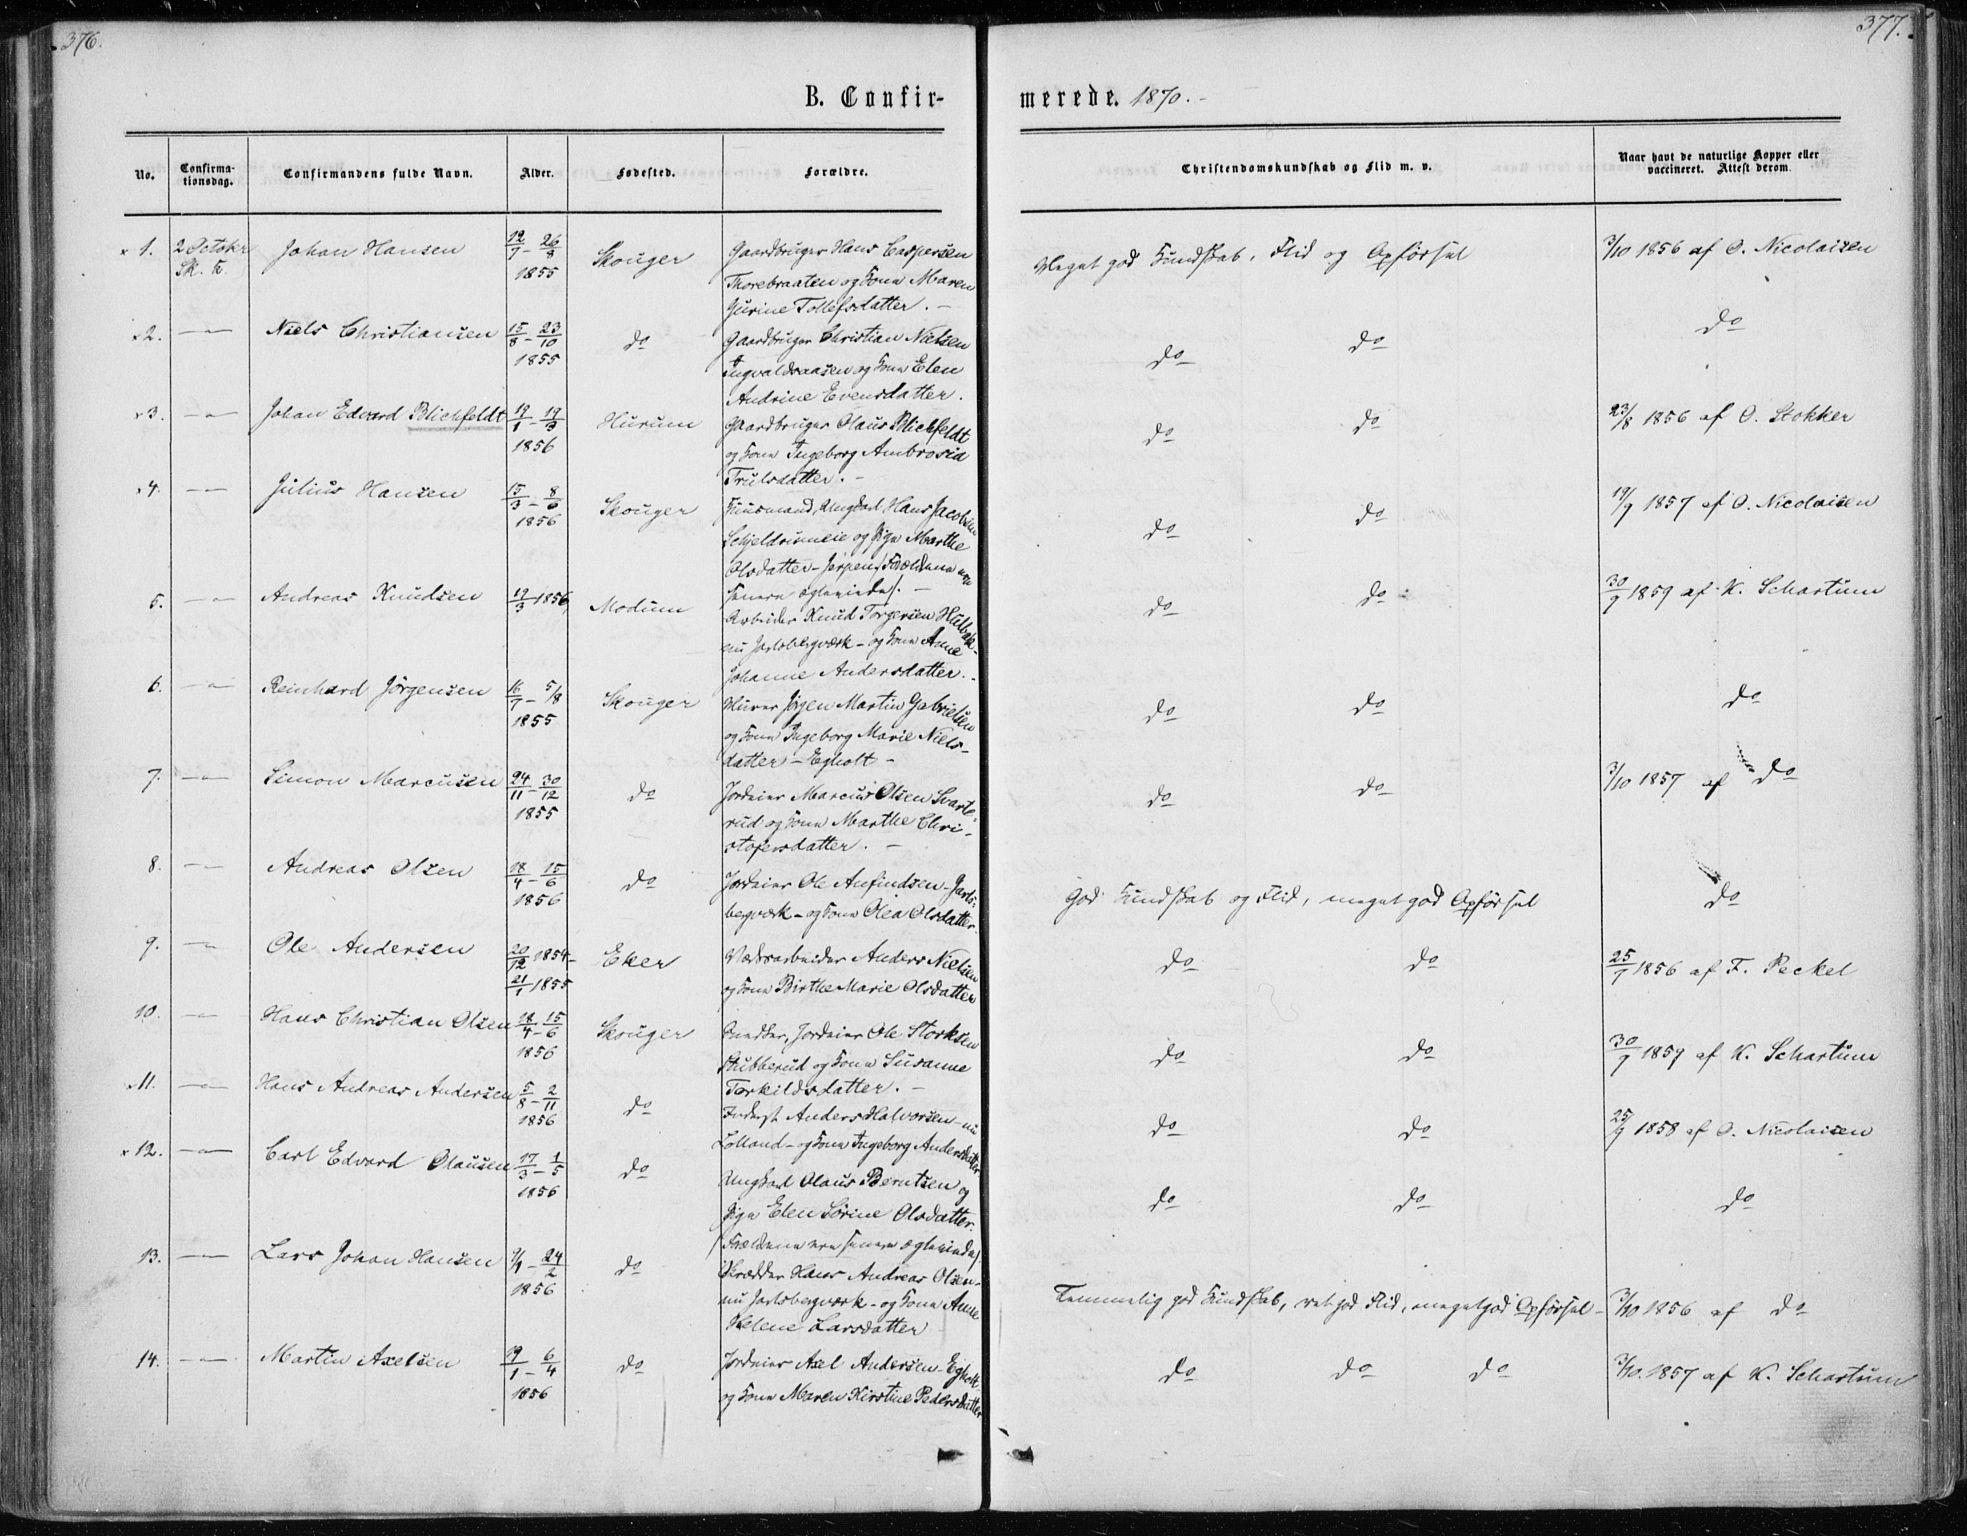 376.
377.
B. Confir-
merede. 1870.-
No.
Confirma-
tionsdag.
Confirmandens fulde Navn.
Alder.
Fødested.
Forældre.
Christendomskundskab og Flid m. v.
Naar havt de naturlige Kopper eller
vaccineret. Attest derom.
x 1. 2 October Johan Hansen 12/7 - 26/8 Skouger Gaardbruger Hans Caspersen Meget god Kundskab, Flid og Opførsel 3/10 1856 af O. Nicolaisen
Sk. K. 1855 Thorebraaten og Kone Maren
Gurine Tollefsdatter. -
x2. -"- Niels Christiansen 15/8 - 23/10 do Gaardbruger Christian Nielsen do do do
1855 Ingvaldsaasen og Kone Elen
Andrine Evensdatter.
x3. -"- Johan Edvard Blichfeldt 12/1 - 19/3 Hurum Gaardbruger Olaus Blichfeldt do do 23/8 1856 af O. Stokker
1856 og Kone Ingeborg Ambrosia
Trulsdatter. -
x4. -"- Julius Hansen 15/3 - 8/6 Skouger Huusmand, Ungkarl Hans Jacobsen do do 19/9 1857 af O. Nicolaisen
1856 og Pige Marthe
Olsdatter - Jerpen (Forældrene ere
senere ægteviede). -
5. -"- Andreas Knudsen 12/3 1856 Modum Arbeider Knud Torgersen do do 30/9 1859 af K. Schartum
nu Jarlsbergværk - og Kone Anne
Johanne Andersdatter. -
6. -"- Reinhard Jörgensen 16/7 - 5/8 Skouger Murer Jörgen Martin Gabrielsen do do do
1855 og Kone Ingeborg Marie Niels-
datter - Egholt -
7. -"- Simon Marcusen 24/11 - 30/12 do Jordeier Marcus Olsen Svarte- do do 3/10 1857 af do
1855 rud og Kone Marthe Chri-
stofersdatter. -
8. -"- Andreas Olsen 18/4 - 15/6 do Jordeier Ole Anfindsen - Jarls- God Kundskab og Flid, meget god Opførsel do
1856 bergværk - og Kone Olea Olsdatter.
9. -"- Ole Andersen 20/12 1854 - Eker Værksarbeider Anders Nielsen do do 25/9 1856 af F. Peckel
21/1 1855 og Kone Birthe Marie Olsdatter
10. -"- Hans Christian Olsen 18/4 - 15/6 Skouger Jordeier Ole Storksen do do 30/9 1859 af K. Schartum
1856 Stubberud og Kone Susanne
Torkildsdatter. -
x11. -"- Hans Andreas Andersen 5/8 - 2/11 do Inderst Anders Halvorsen - nu do do 25/9 1858 af O. Nicolaisen
1856 Lolland - og Kone Ingeborg Andersdatter
x12. -"- Carl Edvard Olausen 17/3 - 1/5 do Ungkarl Olaus Berntsen og do do do
1856 Pige Elen Sörine Olsdatter.
(Forældrene ere senere ægteviede)
13. -"- Lars Johan Hansen 1/1 - 24/2 do Skrædder Hans Andreas Olsen - Temmelig god Kundskab, ret god Flid, meget god Opførsel - 3/10 1856 af do
1856 nu Jarlsbergværk - og Kone Anne
Helene Larsdatter
14. -"- Martin Axelsen 19/1 - 6/4 do Jordeier Axel Andersen - Egholt do do do 3/10 1857 af K. Schartum
1856 og Kone Maren Kirstine Pedersdatter